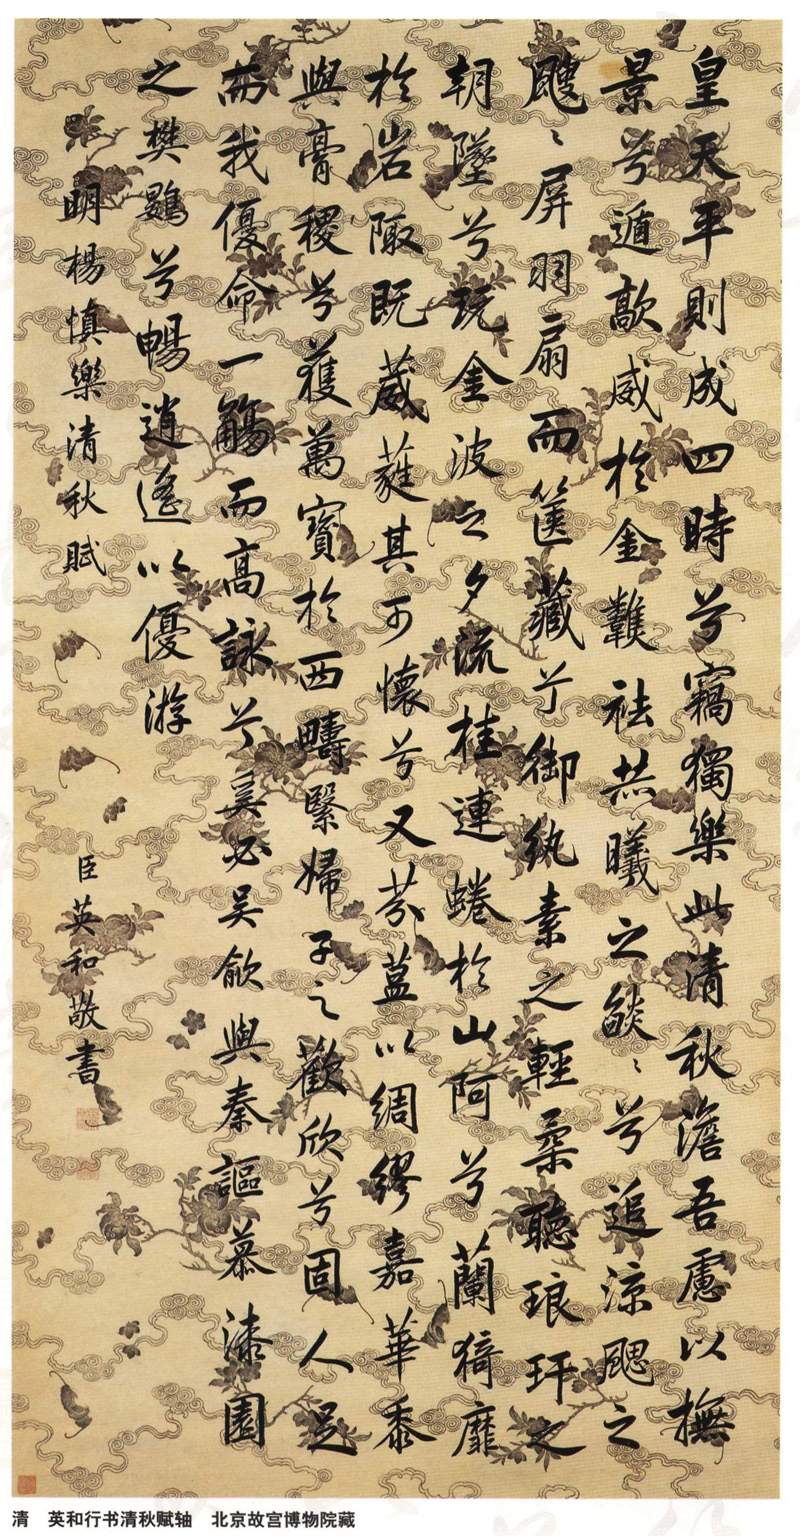 皇天平則成四時兮竊獨樂此清秋澹吾慮以撫
景兮遁歊威於金難祛共曦之燄〻兮追涼颸之
颼〻屏羽扇而篋藏兮御紈素之輕柔聽琅玕之
朝墜兮玩金波之夕流桂連蜷於山阿兮蘭猗靡
於岩陬既葳蕤其可懷兮又芬葢以綢繆嘉華黍
與膏稷兮獲萬寶於西疇緊婦子之歡欣兮固人足
而我優命一觴而高詠兮奚必吴歈與秦謳慕漆園
之樊鷃兮暢逍遙以優游
明楊慎樂清秋賦
臣英和敬書
清 英和行书清秋赋轴 北京故宫博物院藏